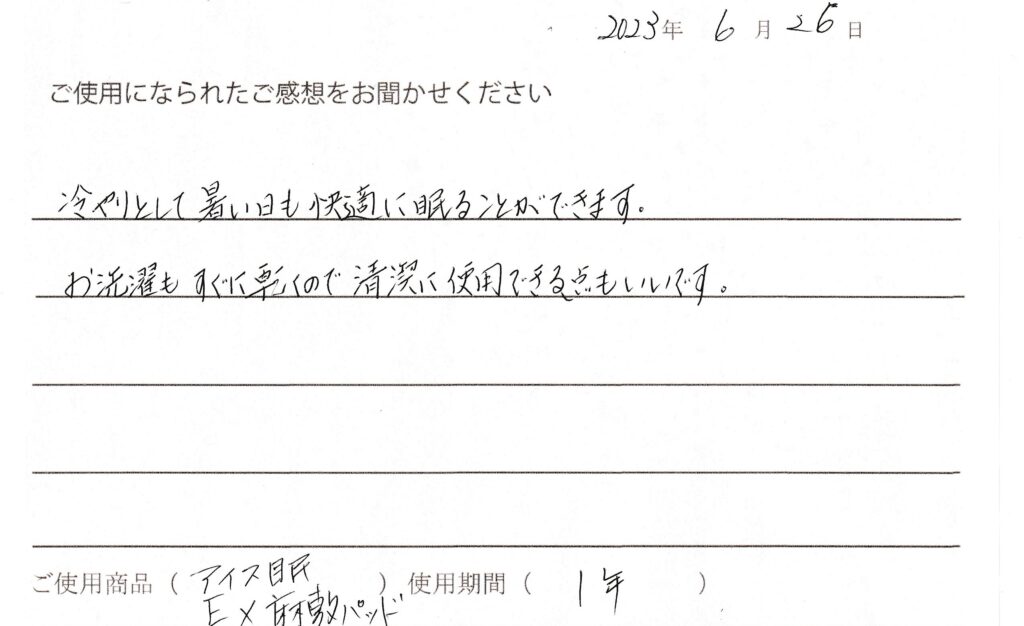 2023年 6月 26日
ご使用になられたご感想をお聞かせください
冷やりとして暑い日も快適に眠ることができます。
お洗濯もすぐに乾くので清潔に使用できる点もいいです。
ご使用商品（ アイス眠 ）使用期間（ 1年 ）
EX麻敷パッド